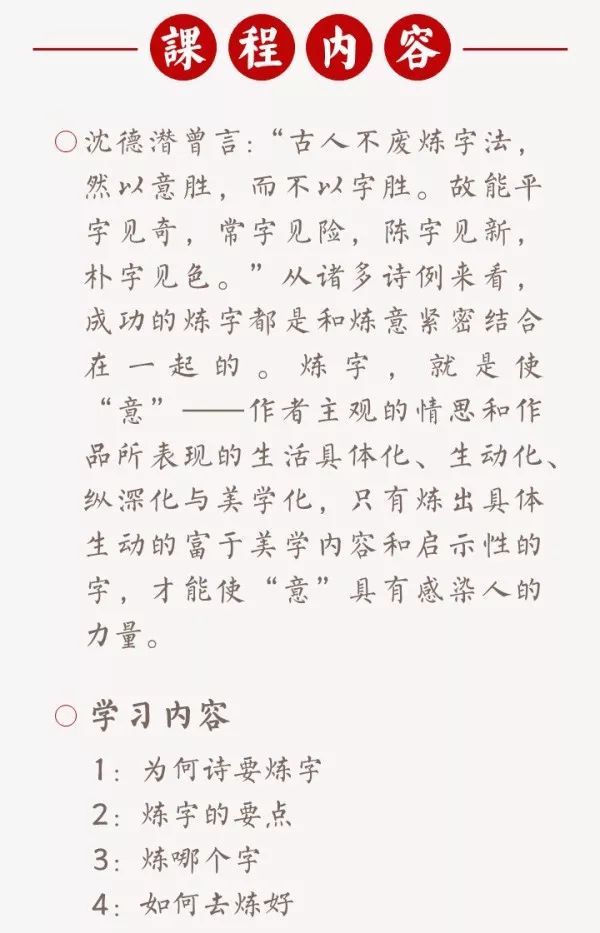 課程内容
沈德潜曾言:“古人不废炼字法，
然以意胜，而不以字胜。故能平
字见奇，常字见险，陈字见新，
朴字见色。”从诸多诗例来看，
成功的炼字都是和炼意紧密结合
在一起的。炼字，就是使
“意”——作者主观的情思和作
品所表现的生活具体化、生动化、
纵深化与美学化，只有炼出具体
生动的富于美学内容和启示性的
字，才能使“意”具有感染人的
力量。
学习内容
1：为何诗要炼字
2：炼字的要点
3：炼哪个字
4：如何去炼好